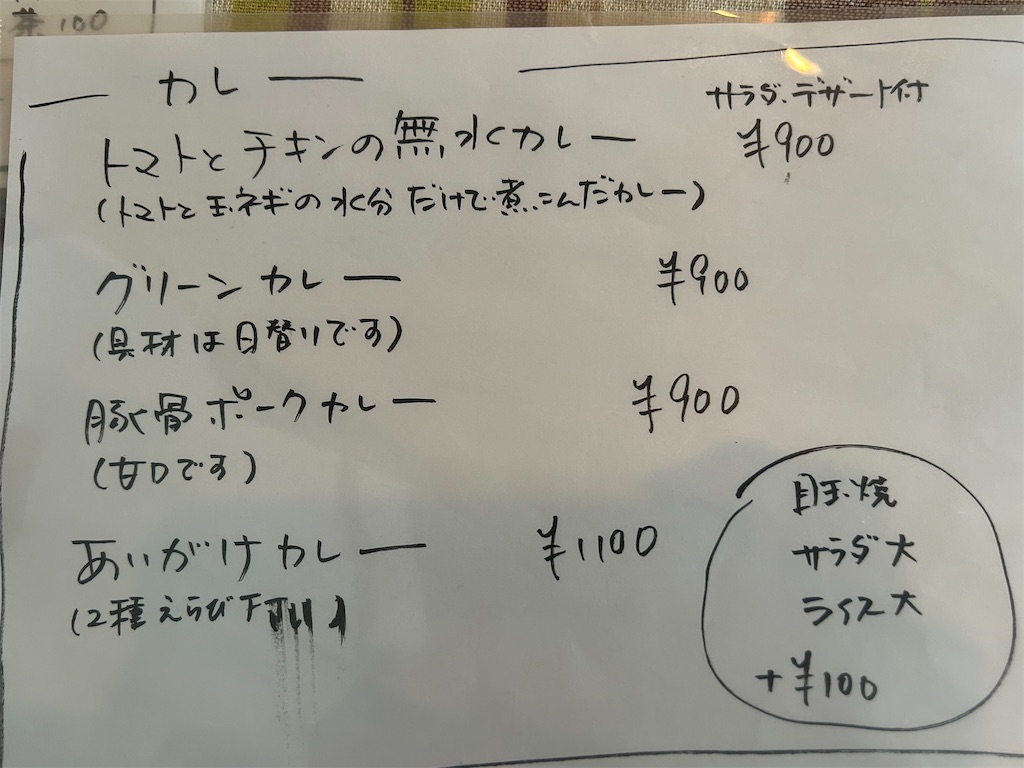 茶 100
カレー
サラダ、デザート付
トマトとチキンの無水カレー ¥900
(トマトと玉ネギの水分だけで煮こんだカレー)
グリーンカレー ¥900
(具材は日替りです)
豚骨ポークカレー ¥900
(甘口です)
あいがけカレー ¥1100
(2種えらび下
目玉焼
サラダ大
ライス大
+¥100